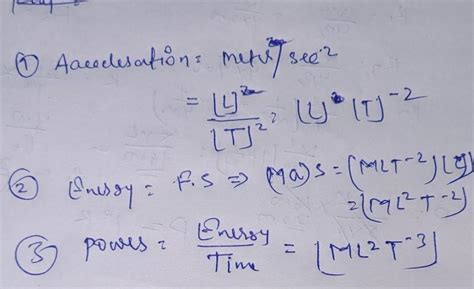 ① Acceleration = meter/sec²
= [L] / [T]² = [L] [T]⁻²
② Energy = F.S ⇒ (Ma) S = (MLT⁻²) (L)
= (ML²T⁻²)
③ Power = Energy / Time = [ML²T⁻³]